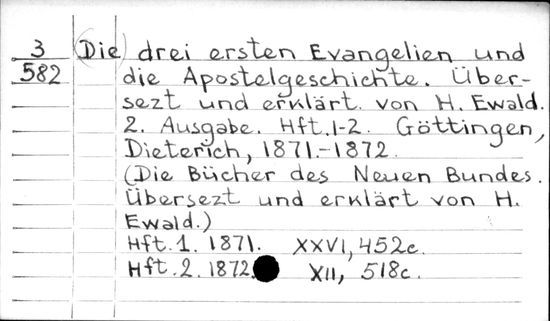 3 (Die) drei ersten Evangelien und
582 die Apostelgeschichte. Über-
sezt und erklärt von H. Ewald.
2. Ausgabe. Hft.1-2. Göttingen,
Dieterich, 1871.-1872.
(Die Bücher des Neuen Bundes.
Übersezt und erklärt von H.
Ewald.)
Hft.1. 1871. XXVI, 452c.
Hft.2. 1872. XII, 518c.